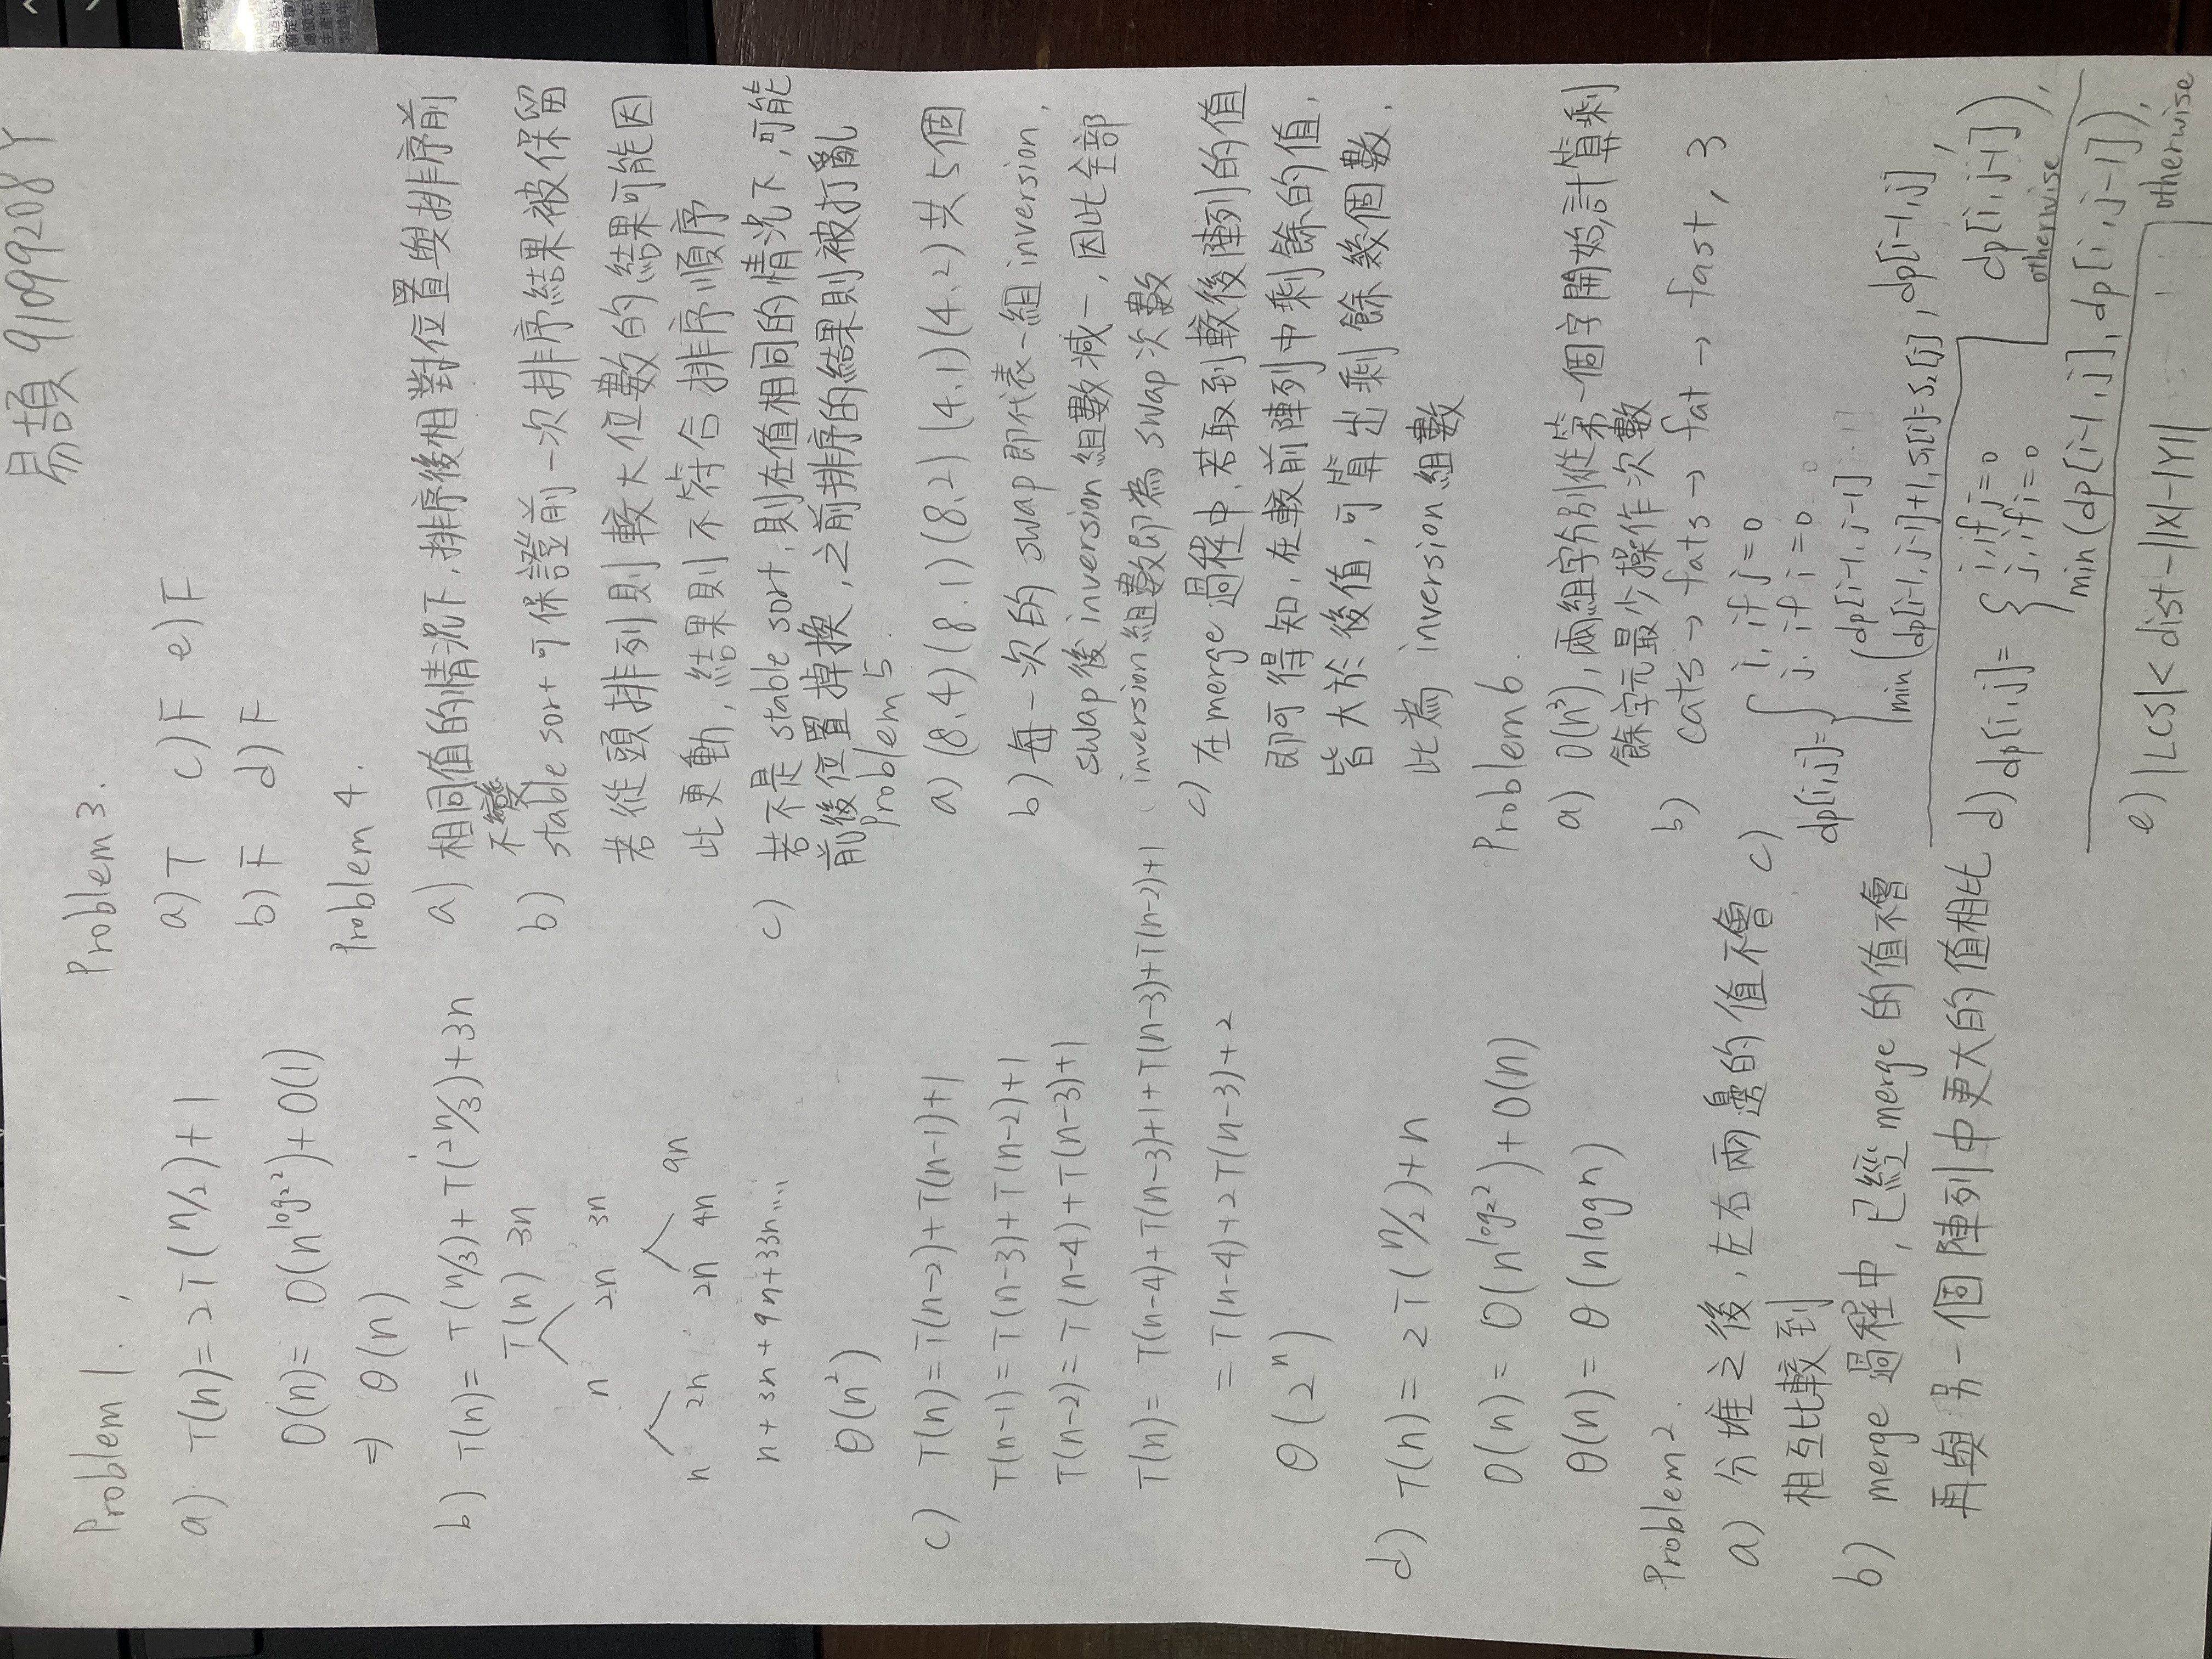 易頡 91099208Y
Problem 1.
a) T(n)=2T(n/2)+1
O(n)= O(n^log₂2)+O(1)
⇒ θ(n)
b) T(n)= T(n/3)+T(2n/3)+3n
T(n) 3n
n 2n 3n
n 2n 2n 4n 9n
n+3n+9n+33n....
θ(n²)
c) T(n)=T(n-2)+T(n-1)+1
T(n-1)=T(n-3)+T(n-2)+1
T(n-2)=T(n-4)+T(n-3)+1
T(n)= T(n-4)+T(n-3)+1+T(n-3)+T(n-2)+1
=T(n-4)+2T(n-3)+2
θ(2ⁿ)
d) T(n)= 2T(n/2)+n
O(n)= O(n^log₂2)+O(n)
θ(n)= θ(nlogn)
Problem 2.
a) 分堆之後,左右兩邊的值不會
相互比較到
b) merge 過程中,已經merge的值不會
再與另一個陣列中更大的值相比
Problem 3.
a) T c) F e) F
b) F d) F
Problem 4.
a) 相同值的情況下,排序後相對位置與排序前
不變
b) stable sort 可保證前一次排序結果被保留
若從頭排列則較大位數的結果可能因
此更動,結果則不符合排序順序
c) 若不是 stable sort,則在值相同的情況下,可能
前後位置掉換,之前排序的結果則被打亂
Problem 5.
a) (8、4)(8、1)(8、2)(4、1)(4、2)共5個
b) 每一次的 swap 即代表一組 inversion,
swap後 inversion 組數減一,因此全部
inversion 組數即為 swap 次數
c) 在merge 過程中,若取到較後陣列的值
即可得知,在較前陣列中剩餘的值,
皆大於後值,可算出剩餘幾個數,
此為 inversion 組數
Problem 6.
a) O(n³),兩組字分別從第一個字開始,計算剩
餘字元最少操作次數
b) cats → fats → fat → fast, 3
c) i, if j=0
dp[i,j]= j, if i=0
dp[i-1,j-1]
min(dp[i-1,j-1]+1,S₁[i]=S₂[j],dp[i-1,j],
dp[i,j-1]),
otherwise
d) dp[i,j]= i, if j=0
j, if i=0
min(dp[i-1,j],dp[i,j-1]),
otherwise
e) |LCS|< dist-||X|-|Y||